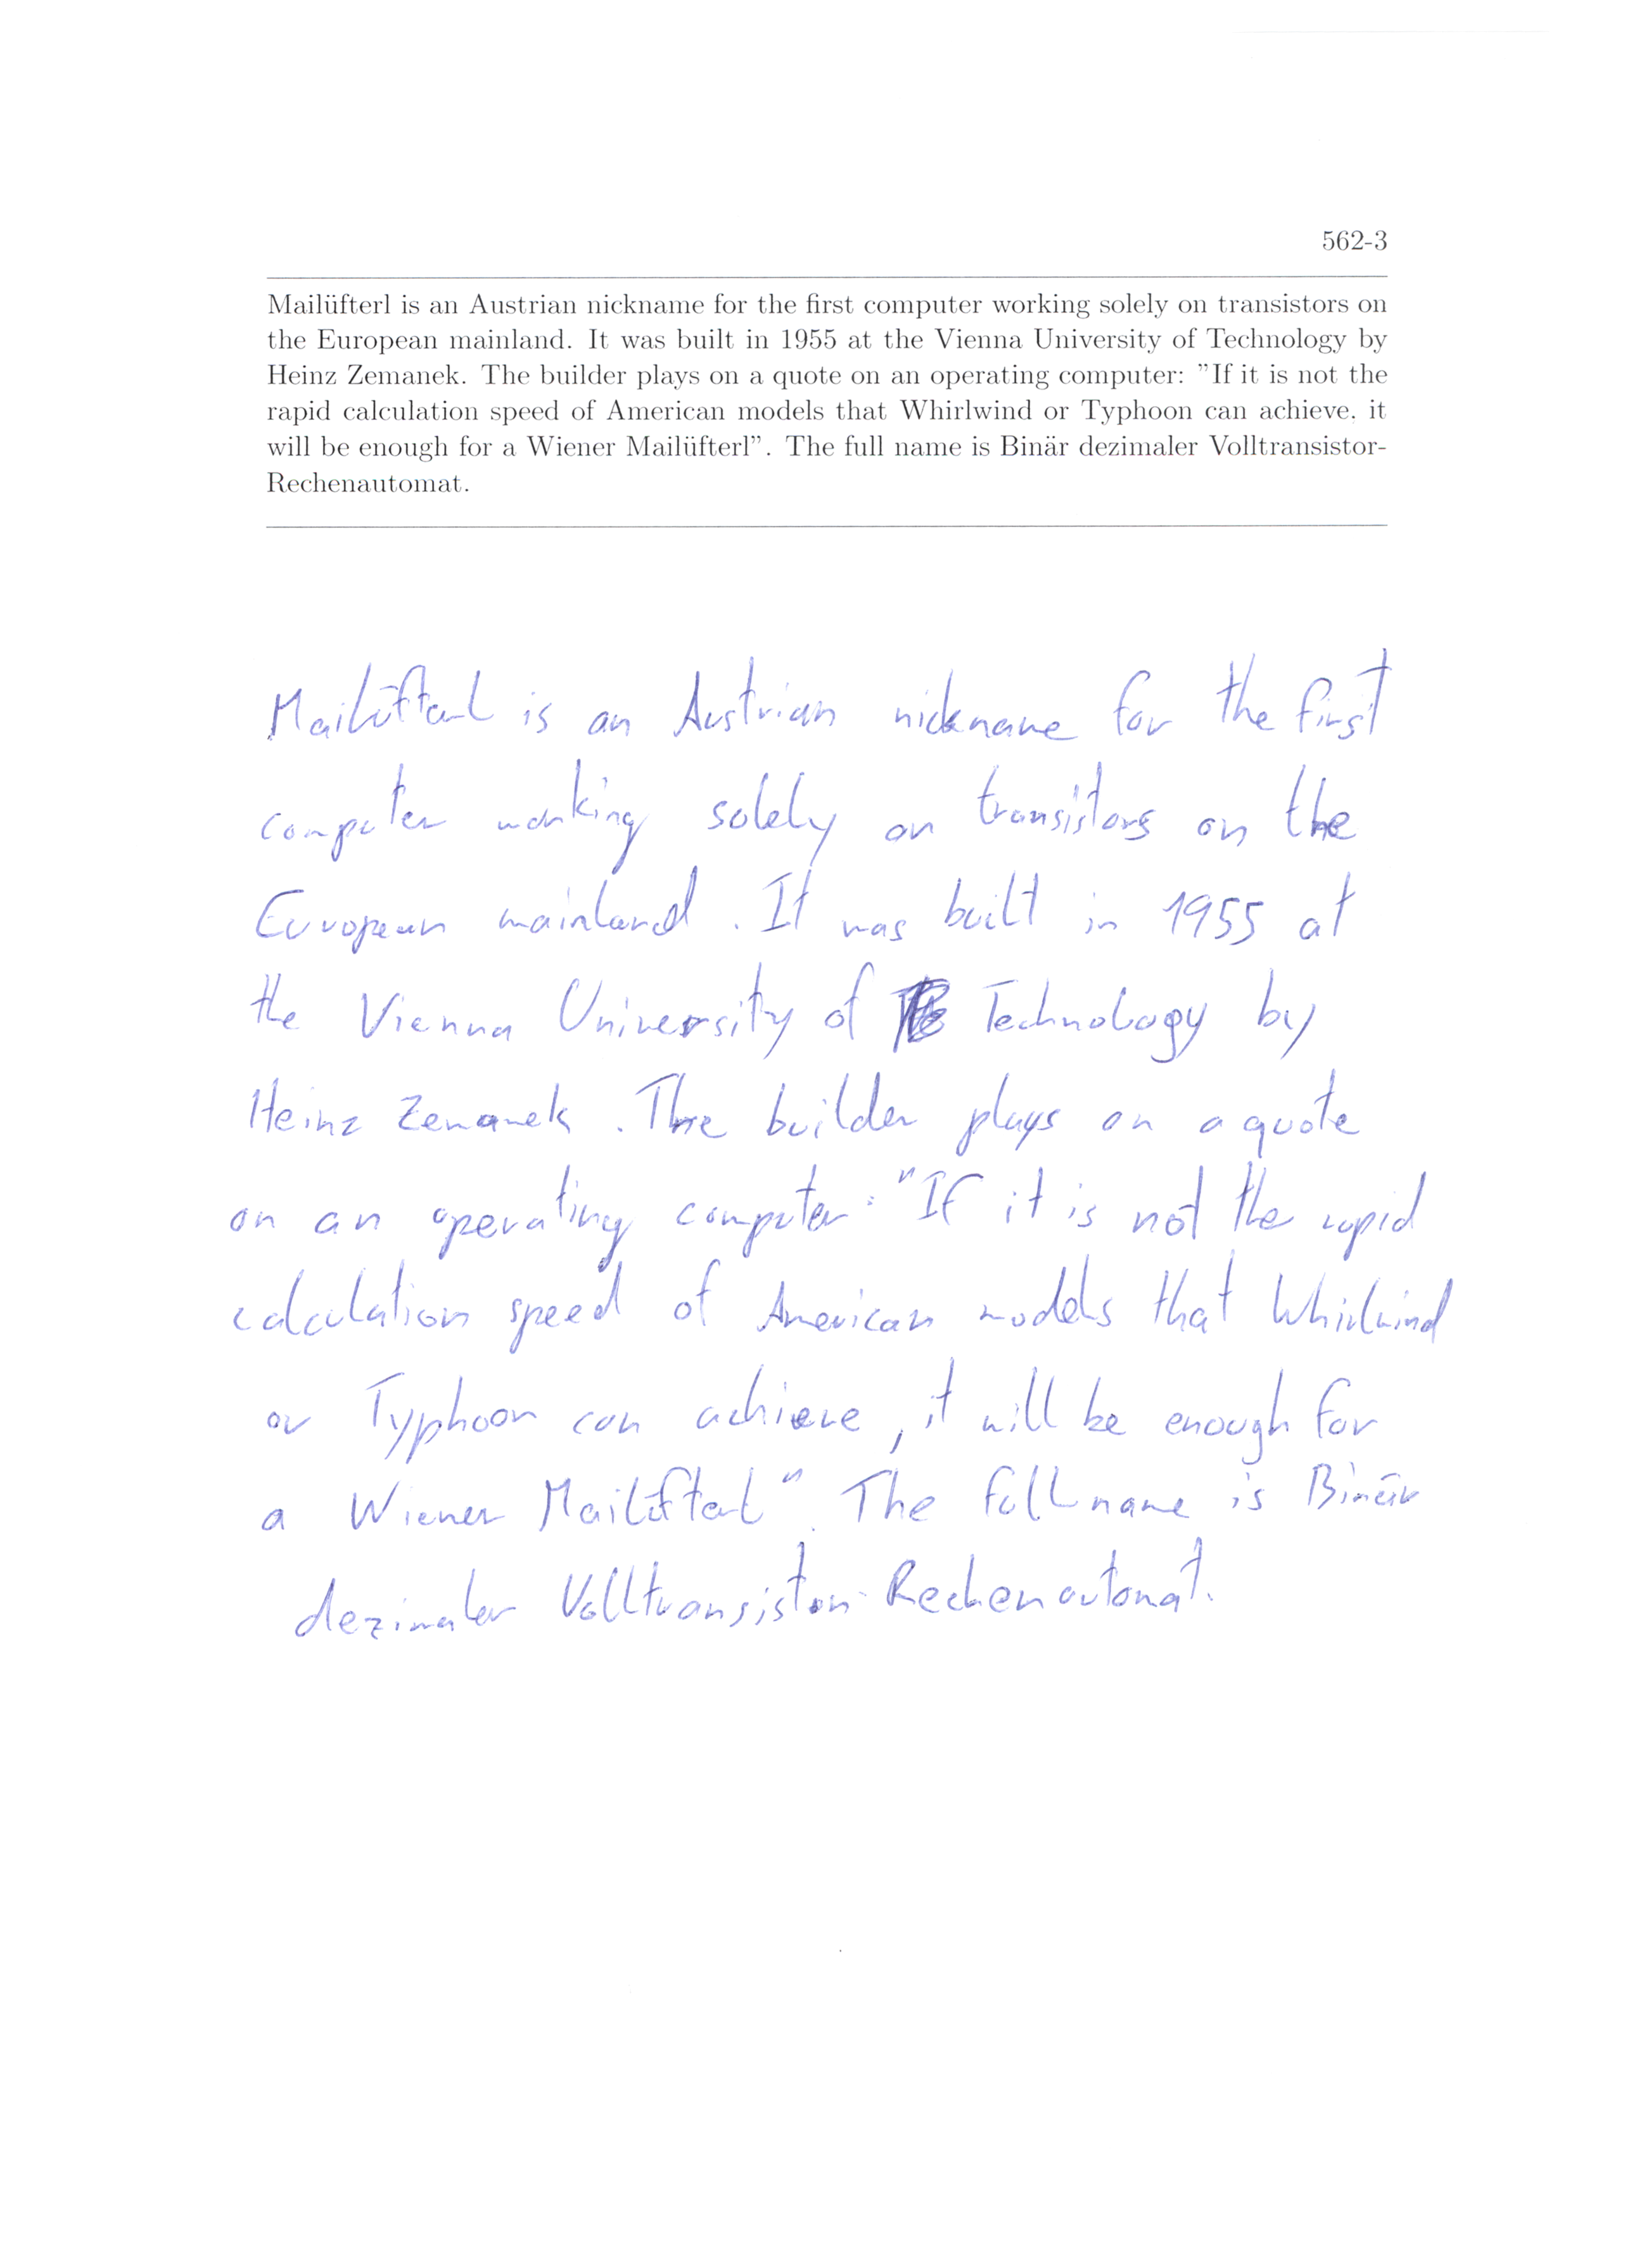 562-3
Mailüfterl is an Austrian nickname for the first computer working solely on transistors on
the European mainland. It was built in 1955 at the Vienna University of Technology by
Heinz Zemanek. The builder plays on a quote on an operating computer: "If it is not the
rapid calculation speed of American models that Whirlwind or Typhoon can achieve. it
will be enough for a Wiener Mailüfterl". The full name is Binär dezimaler Volltransistor-
Rechenautomat.
Mailüfterl is an Austrian nickname for the first
computer working solely on transistors on the
European mainland. It was built in 1955 at
the Vienna University of Technology by
Heinz Zemanek. The builder plays on a quote
on an operating computer: "If it is not the rapid
calculation speed of American models that Whirlwind
or Typhoon can achieve, it will be enough for
a Wiener Mailüfterl". The full name is Binär
dezimaler Volltransistor-Rechenautomat.